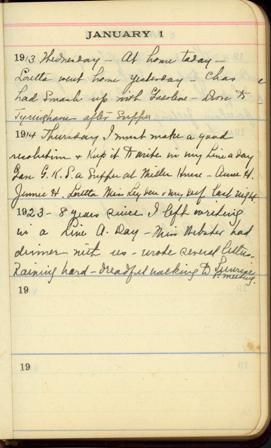 JANUARY 1
1913 Wednesday - At home today -
Loretta went home yesterday - Chas
had smash up with Gasolene - Drove to
Tyringham after supper
1914 Thursday I must make a good
resolution & Keep it to write in my Line a day
Gave G. K. S. a Supper at Miller House - Anne H.
Jennie H. Loretta Miss & myself last night
1923 - 8 years since I left writing
in a Line A. Day - Miss Webster had
dinner with us - wrote several letters -
Raining hard - dreadful walking to
meeting.
19
19